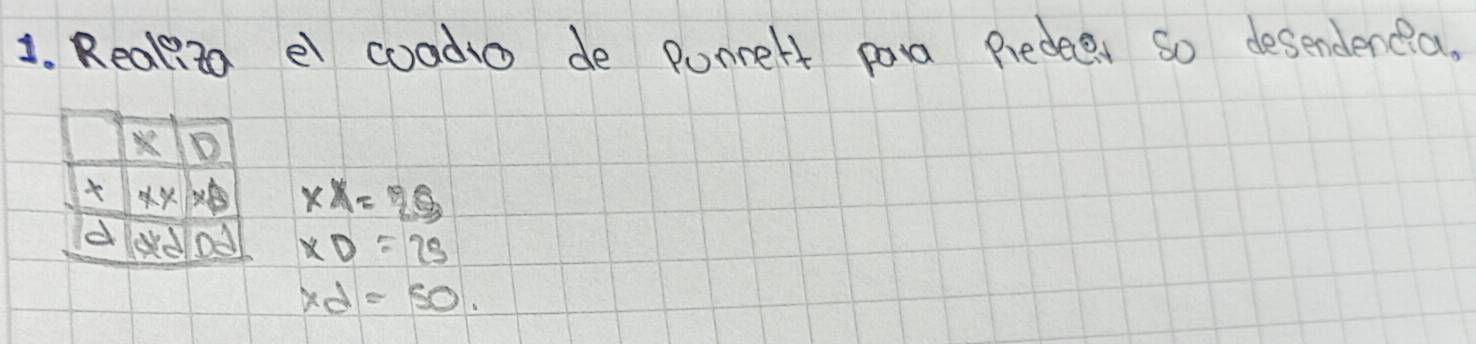 1. Realiza el cuadro de Punnett para Predecir so desendencia.
X D
x xx xD
d xd Dd
xX = 25
xD = 25
xd = 50.